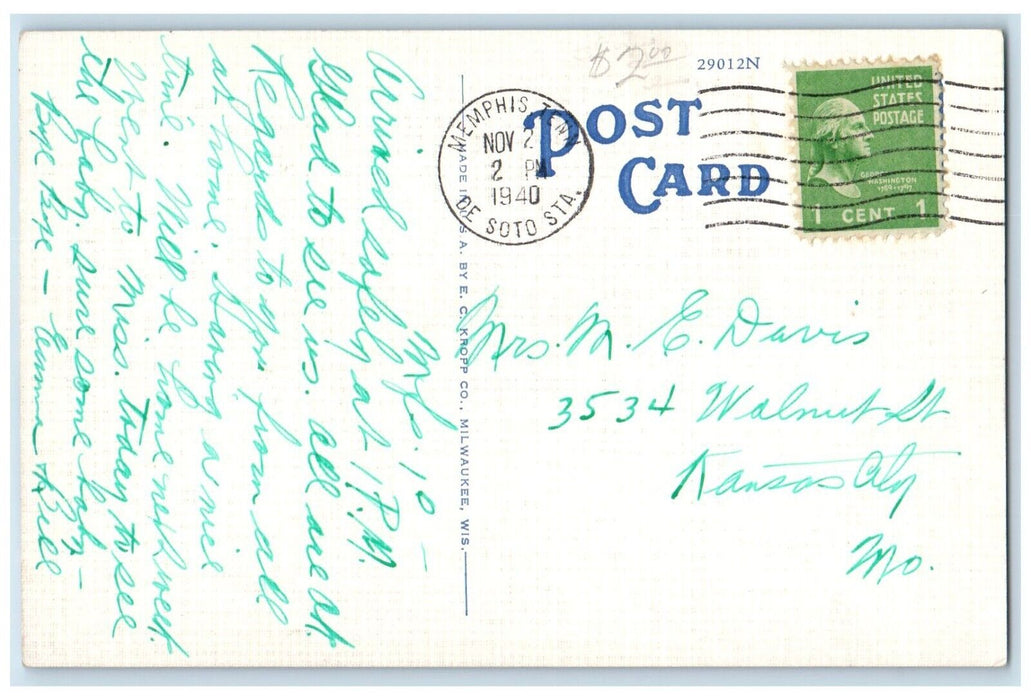 $2.00
29012N
POST
CARD
UNITED
STATES
POSTAGE
GEORGE
WASHINGTON
1789-1797
1 CENT 1
MEMPHIS, TENN.
NOV 2
2 PM
1940
DE SOTO STA.
MADE IN U.S.A. BY E. C. KROPP CO., MILWAUKEE, WIS.
10 –
Arrived safely at 1 P.M.
Glad to see us. all are at
Regards to you from all
at home. Having a nice
time. Will be home next week.
Went to Miss. today to see
the baby, sure some baby –
Bye Bye – Emma & Bill
Mrs. M. E. Davis
3534 Walnut St
Kansas City
Mo.